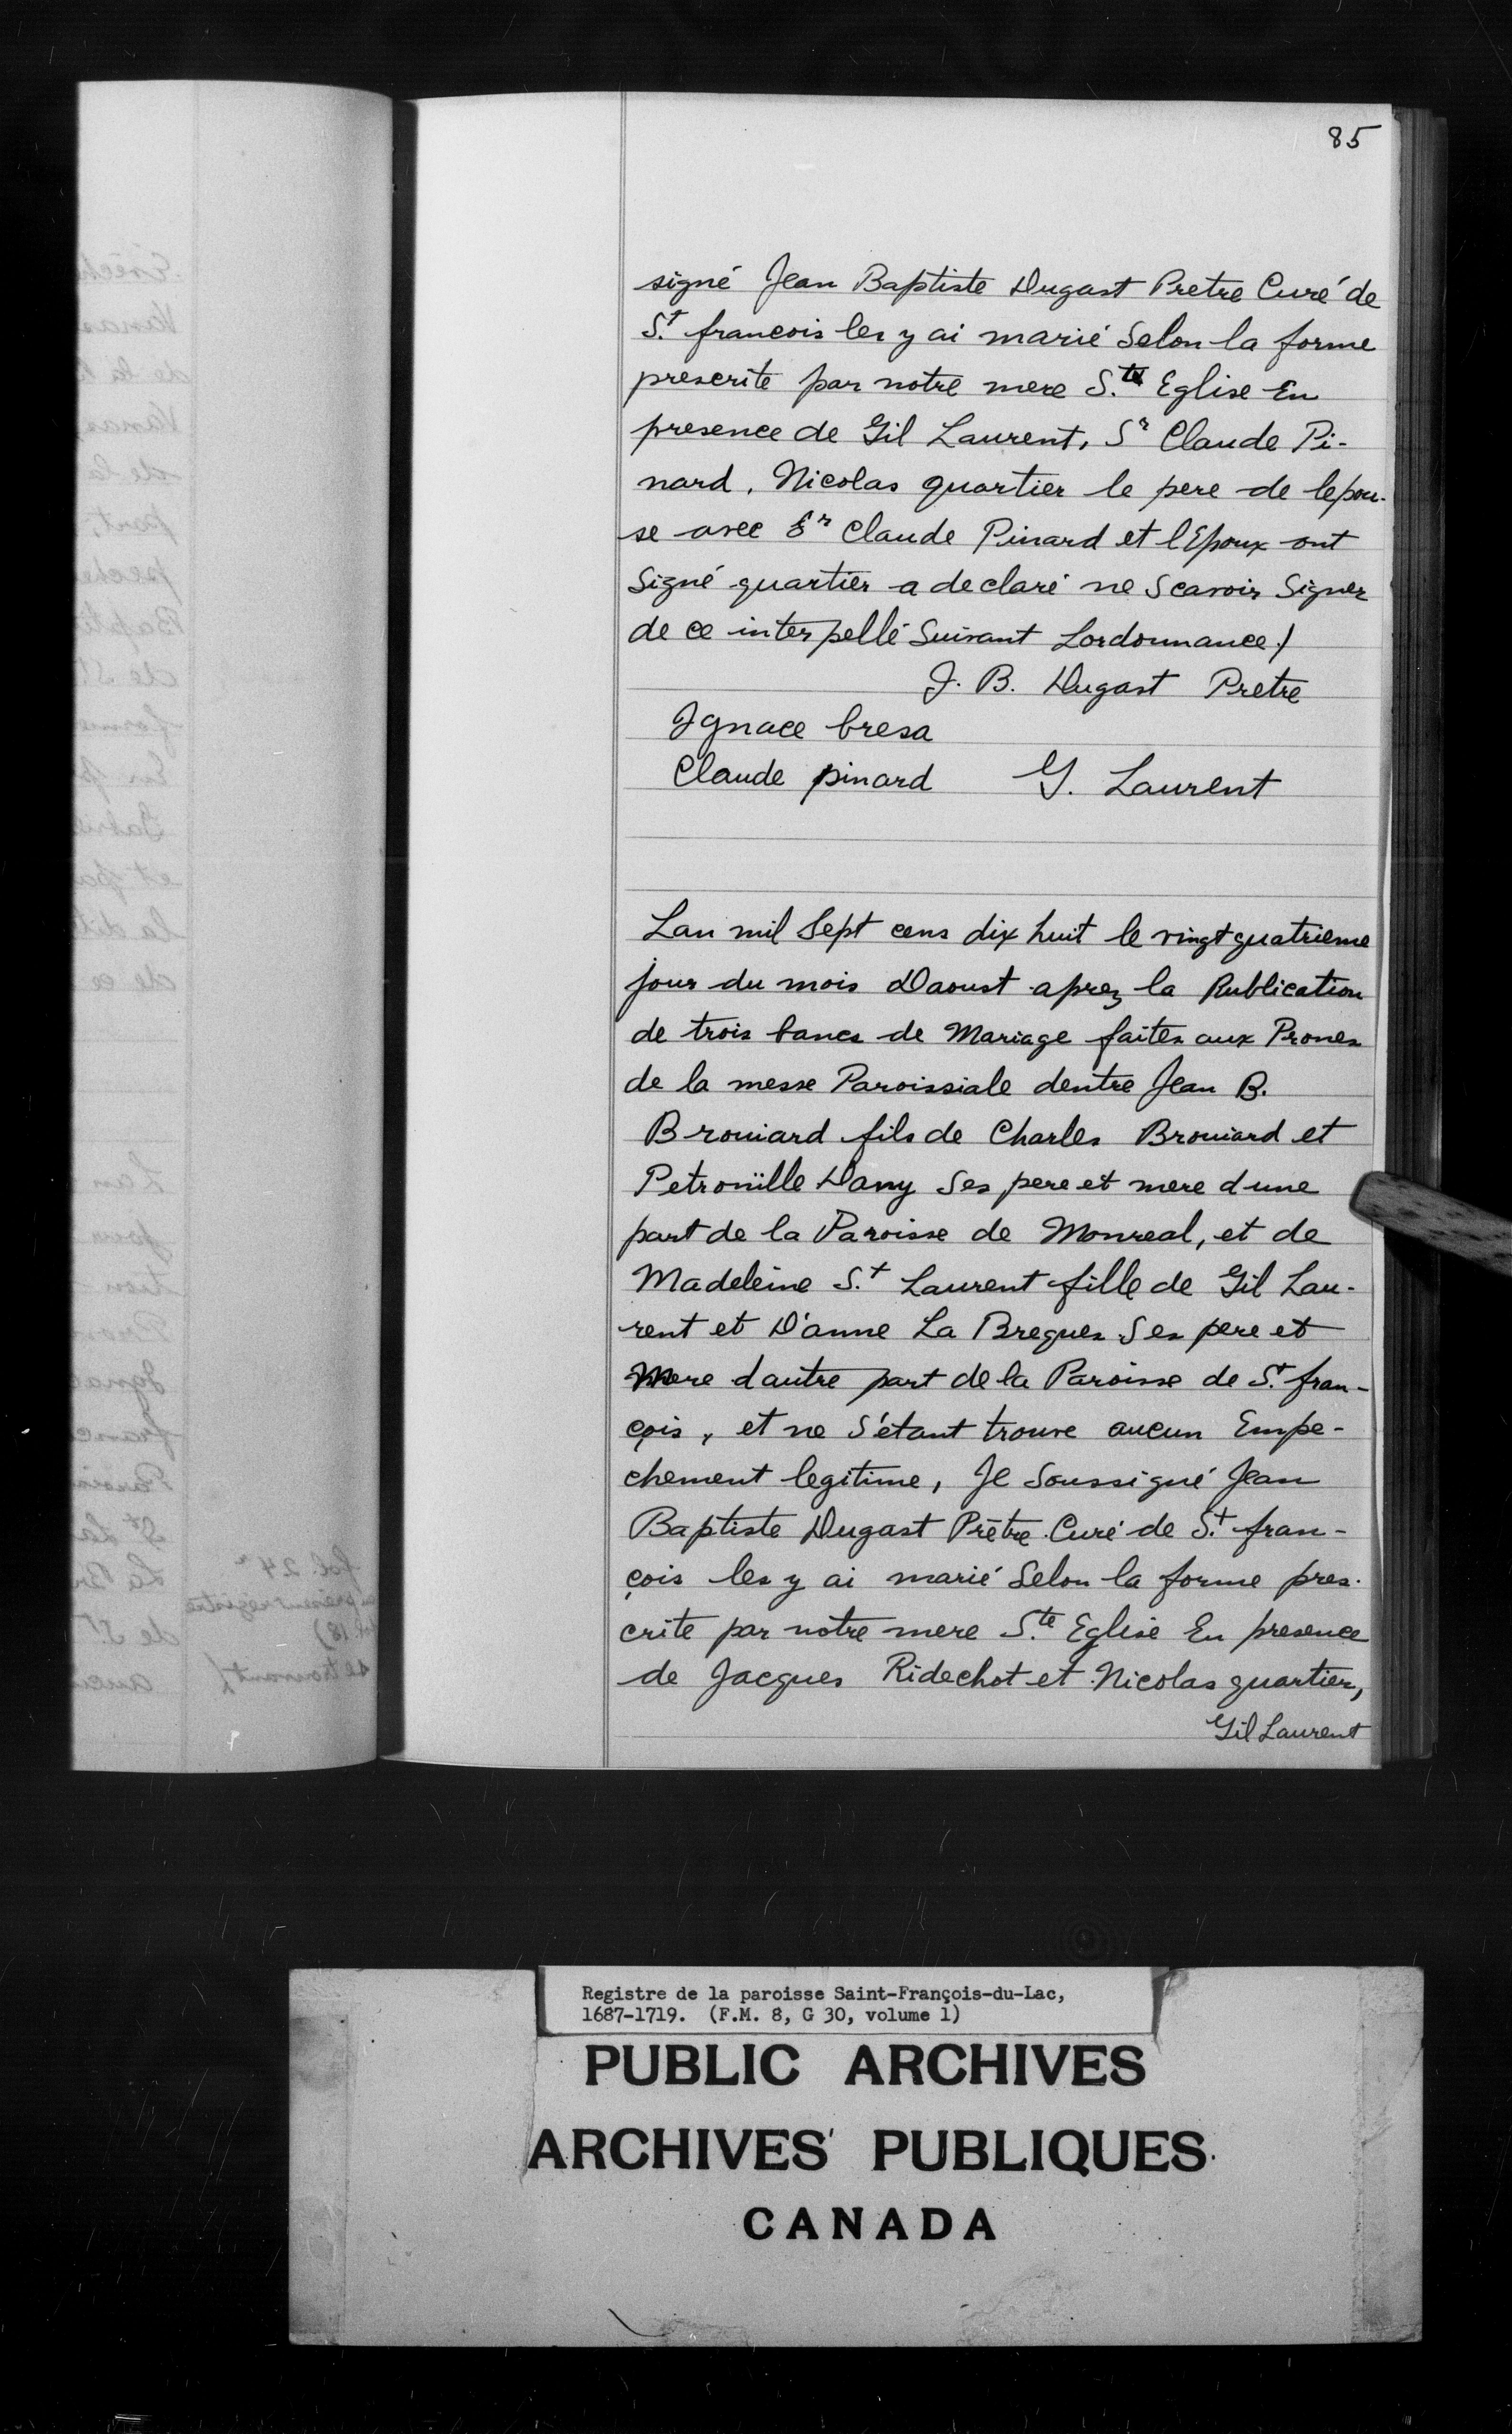 85
signé Jean Baptiste Dugast Pretre Curé de
S.t francois les y ai marié Selon la forme
prescrite par notre mere S.te Eglise En
presence de Gil Laurent, Sr Claude Pi-
nard, Nicolas quartier le pere de lepou-
se avec Sr Claude Pinard et lEpoux ont
Signé quartier a declaré ne Scavoir Signer
de ce interpellé Suivant Lordonnance/
J. B. Dugast Pretre
Ignace bresa
Claude pinard G. Laurent
Lan mil Sept cens dix huit le vingt quatrieme
jour du mois Daoust aprez la Publication
de trois bancs de Mariage faites aux Prones
de la messe Paroissiale dentre Jean B.
Brouiard fils de Charles Brouiard et
Petroüille Dany Ses pere et mere dune
part de la Paroisse de Monreal, et de
Madeleine S.t Laurent fille de Gil Lau-
rent et D'anne La Bregues Ses pere et
Mere dautre part de la Paroisse de S.t fran-
çois, et ne S'étant trouve aucun Empe-
chement legitime, Je Soussigné Jean
Baptiste Dugast Prêtre Curé de S.t fran-
çois les y ai marié Selon la forme pres-
crite par notre mere S.te Eglise En presence
de Jacques Ridechot et Nicolas quartier,
Gil Laurent
Registre de la paroisse Saint-François-du-Lac,
1687-1719. (F.M. 8, G 30, volume 1)
PUBLIC ARCHIVES
ARCHIVES PUBLIQUES
CANADA